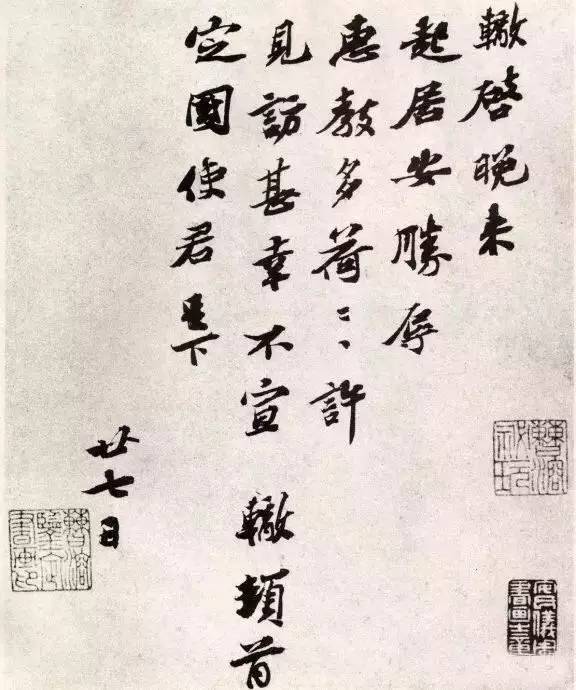 轍啓晚來
起居安勝辱
惠教多荷〻許
見訪甚幸不宣 轍頓首
定國使君足下
廿七日